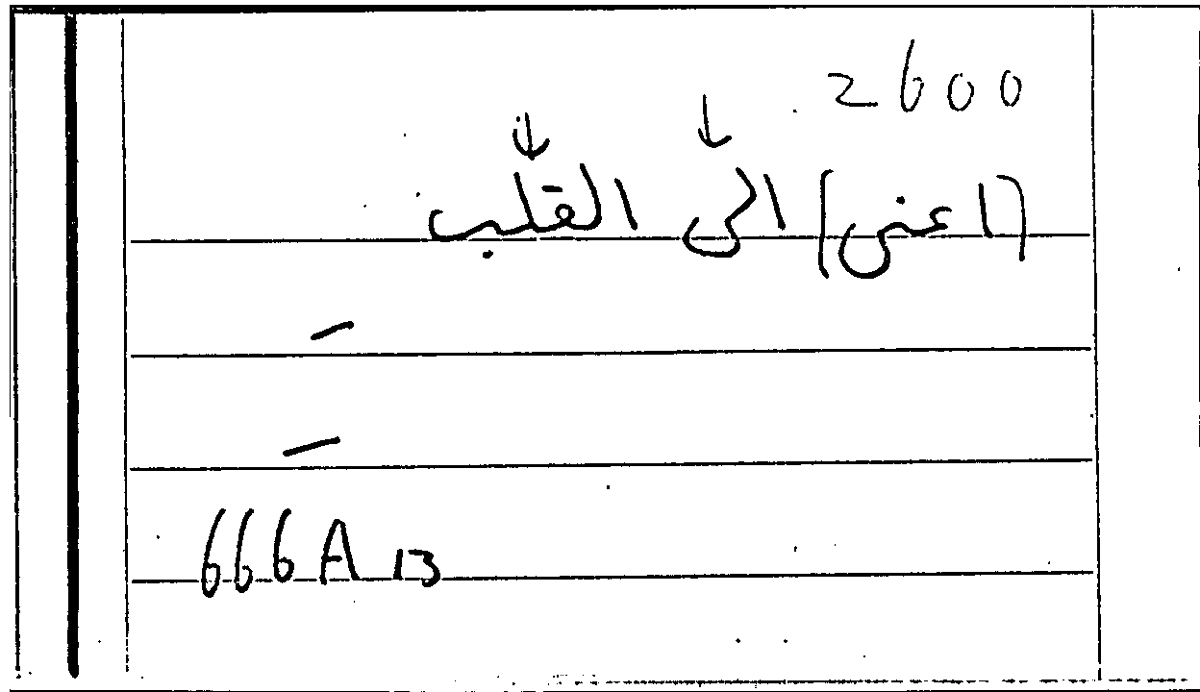 2600
(اعنى) الى القلب
666A13